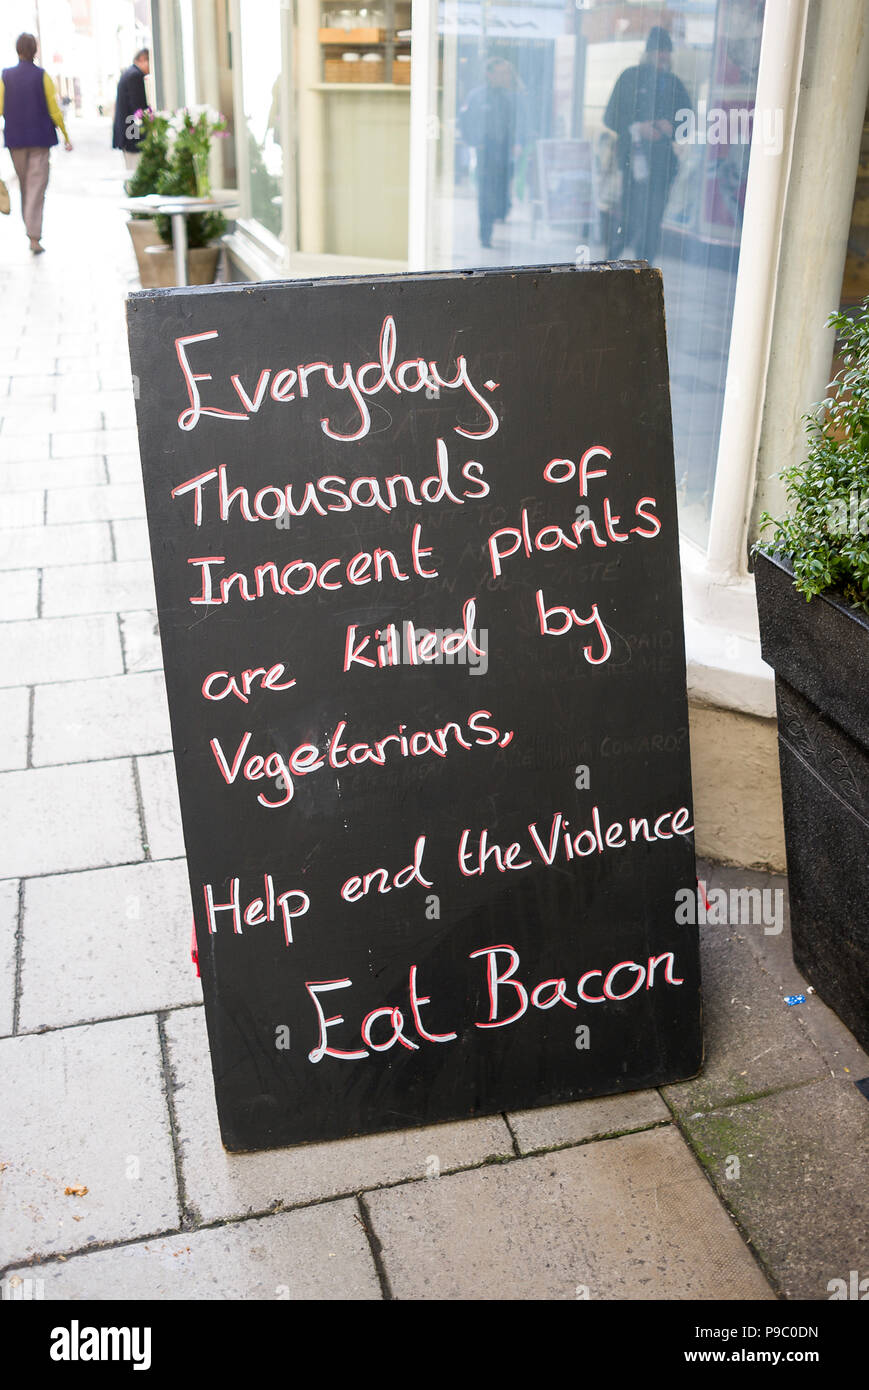 Everyday.
Thousands of
Innocent plants
are killed by
Vegetarians,
Help end the Violence
Eat Bacon
a alamy stock photo
P9C0DN
www.alamy.com